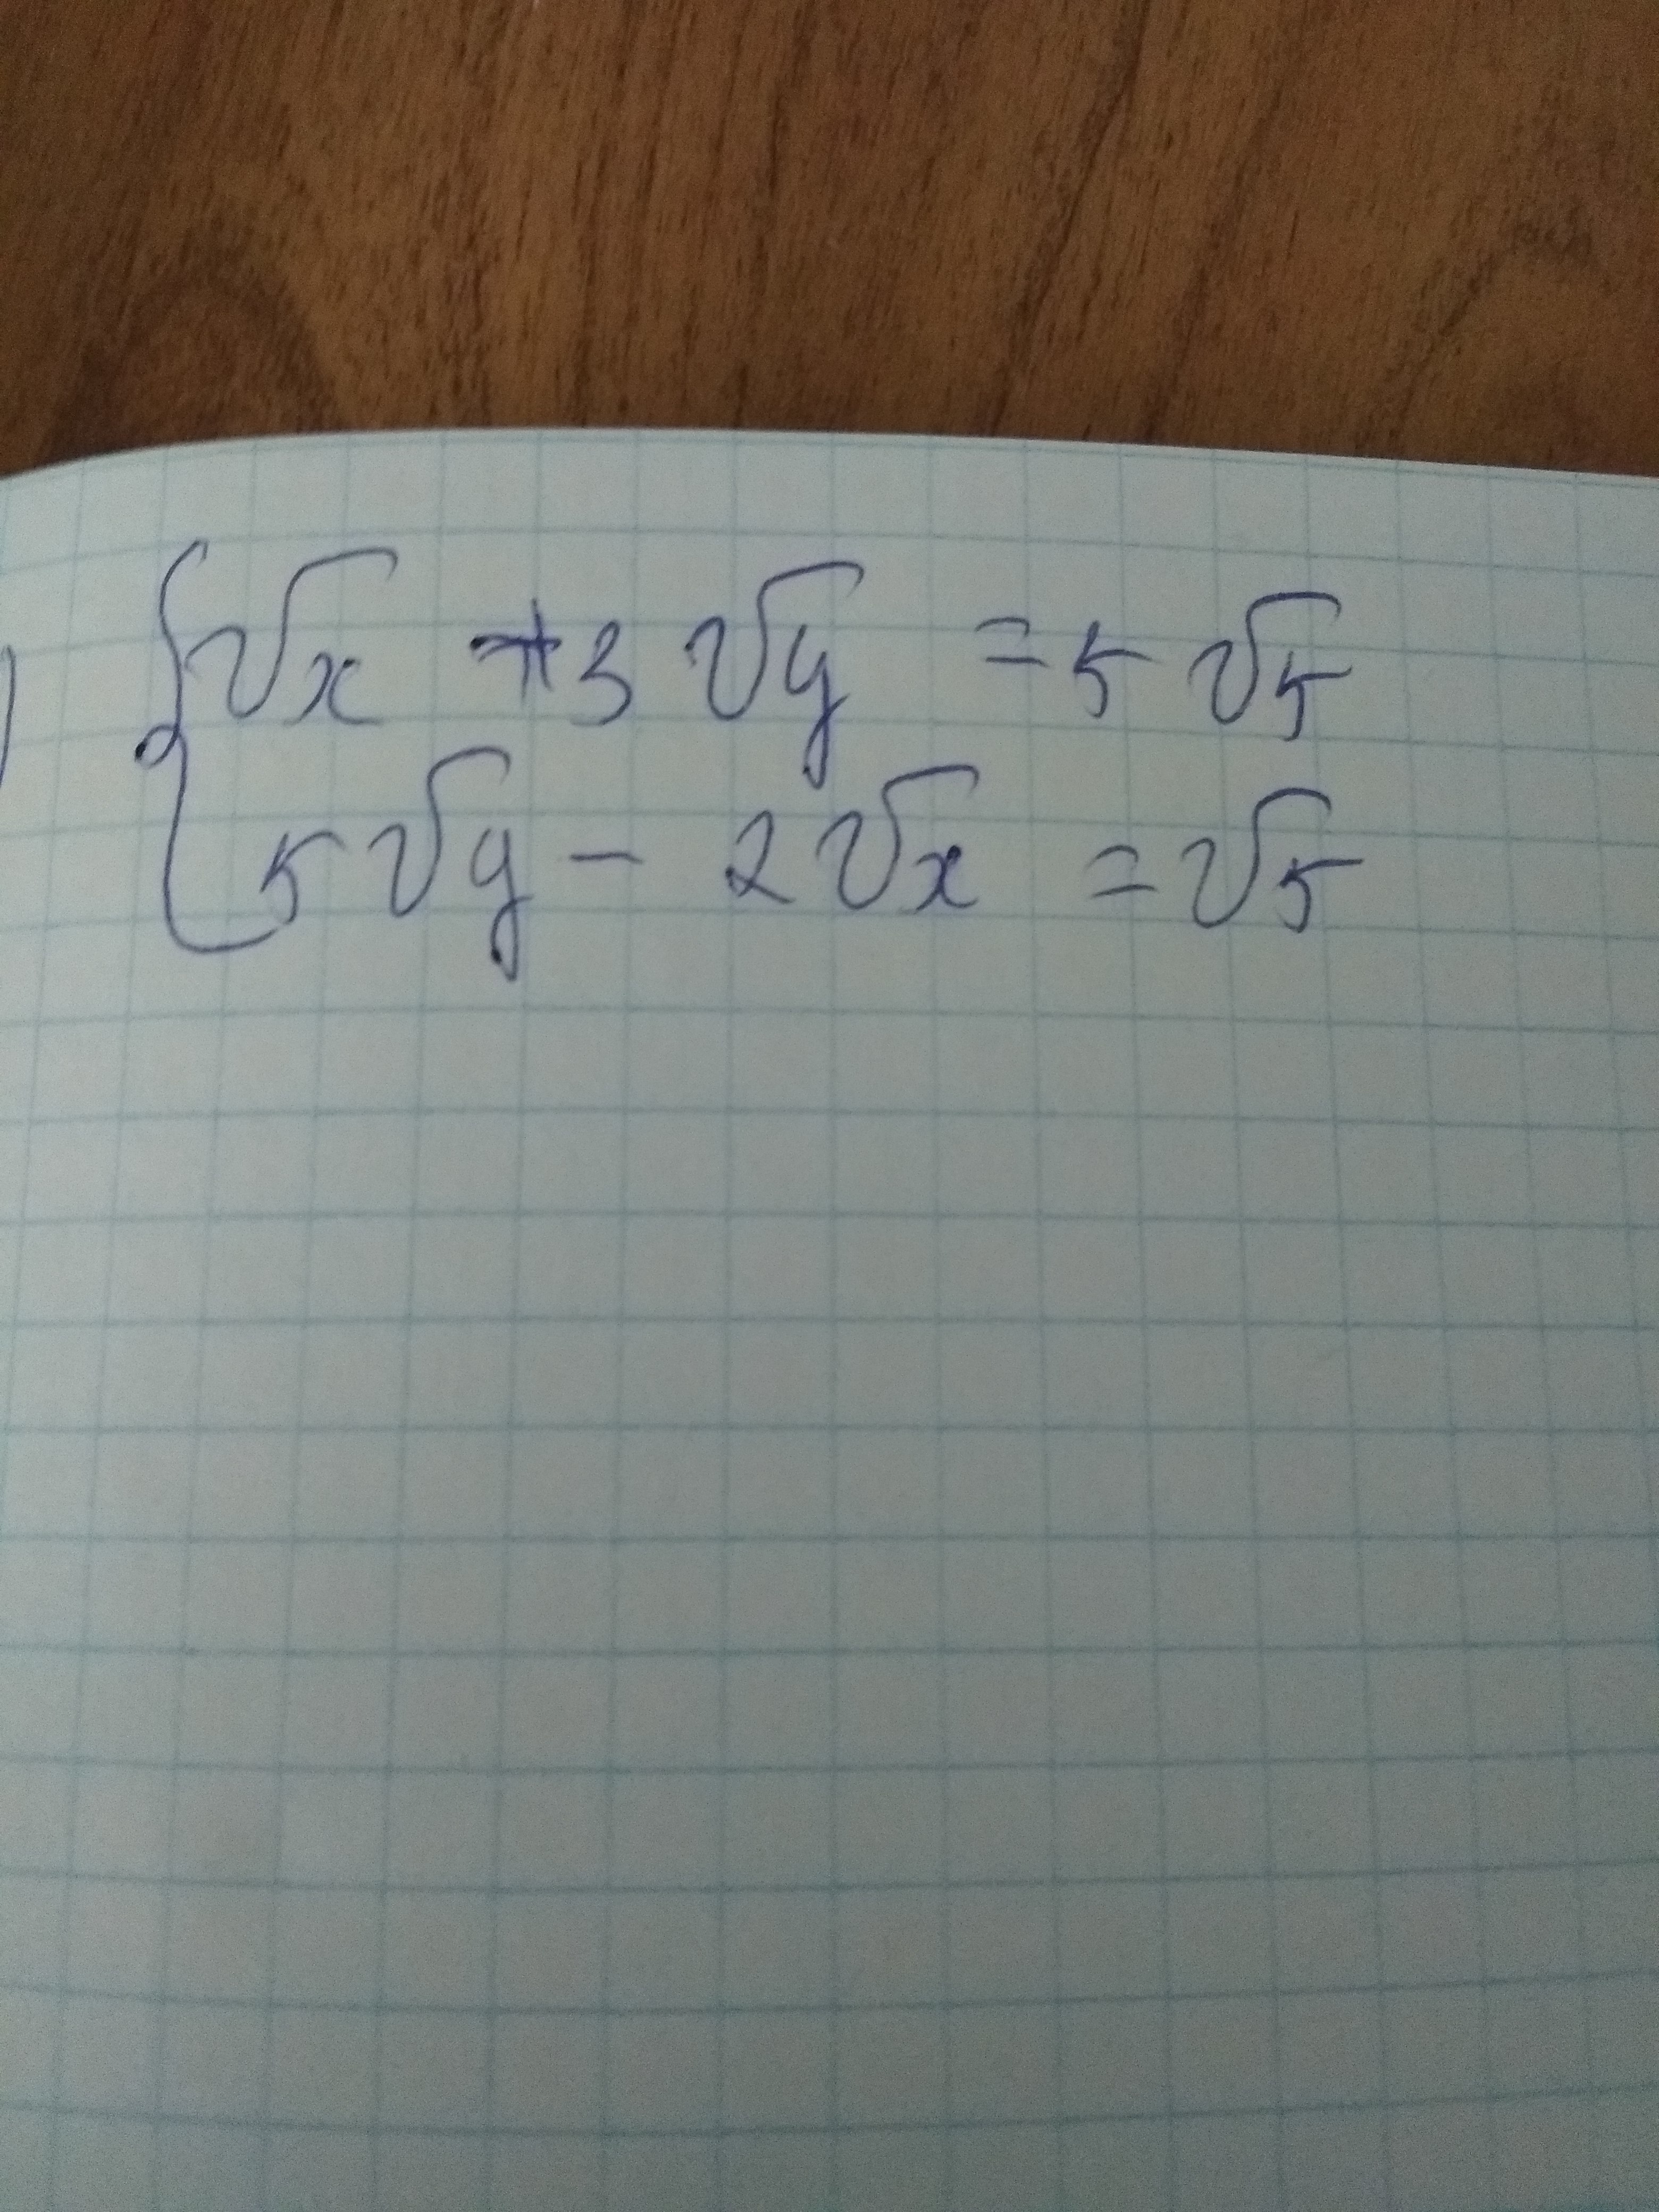 √x + 3√y = 5√5
5√y - 2√x = √5